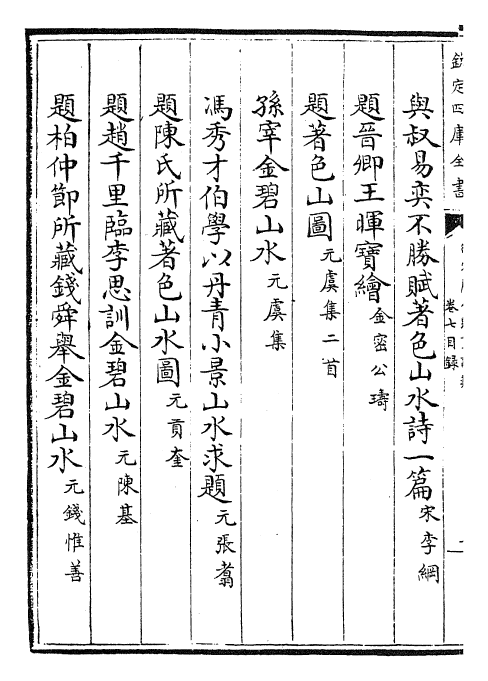 欽定四庫全書
卷七目録
與叔易奕不勝賦著色山水詩一篇宋李綱
題晉卿王暉寶繪金密公璹
題著色山圖元虞集二首
孫宰金碧山水元虞集
馮秀才伯學以丹青小景山水求題元張翥
題陳氏所藏著色山水圖元貢奎
題趙千里臨李思訓金碧山水元陳基
題柏仲節所藏錢舜舉金碧山水元錢惟善